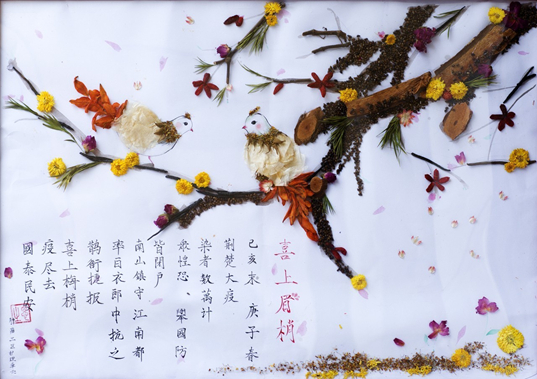 喜上眉梢
己亥末 庚子春
荆楚大疫
染者数万计
众惶恐、举国防
皆闭户
南山镇守江南都
率白衣郎中抗之
鹊衔捷报
喜上梅梢
疫尽去
国泰民安